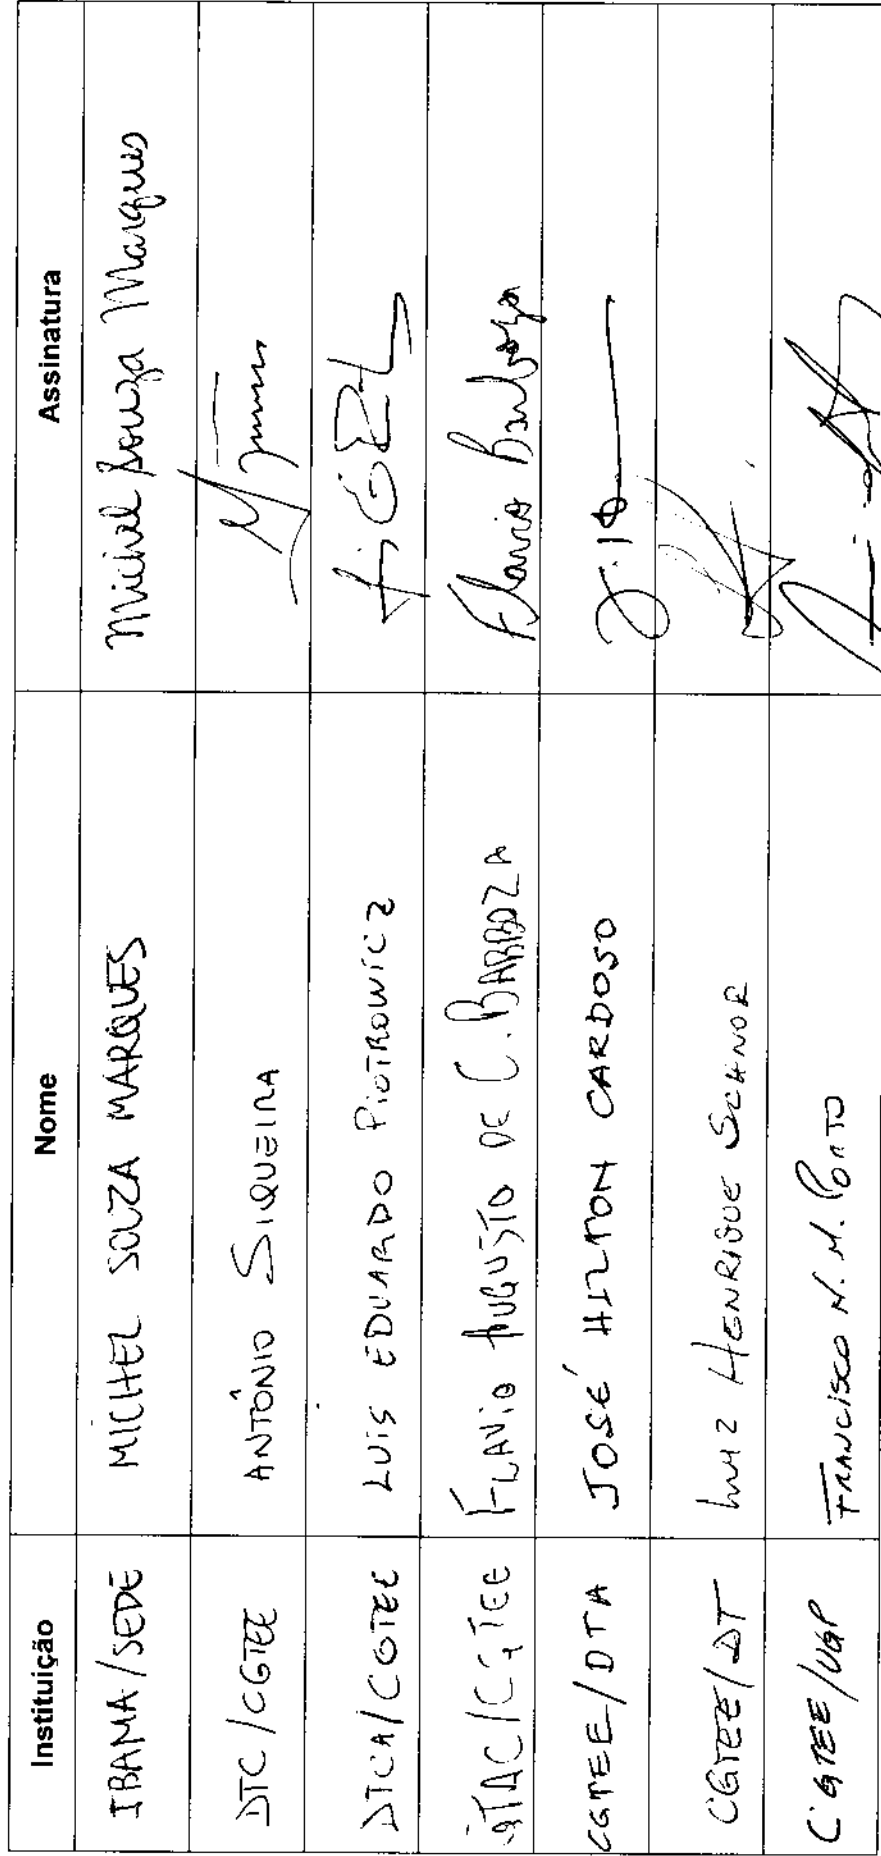 Instituição Nome Assinatura
IBAMA/SEDE MICHEL SOUZA MARQUES Michel Souza Marques
DTC/CGTEE ANTÔNIO SIQUEIRA
DTCA/CGTEE LUIS EDUARDO PIOTROWICZ
DTAC/CGTEE FLAVIO AUGUSTO DE C. BARBOZA Flavio Barboza
CGTEE/DTA JOSÉ HILTON CARDOSO
CGTEE/DT LUIZ HENRIQUE SCHNOR
CGTEE/UGP FRANCISCO N. M. PORTO